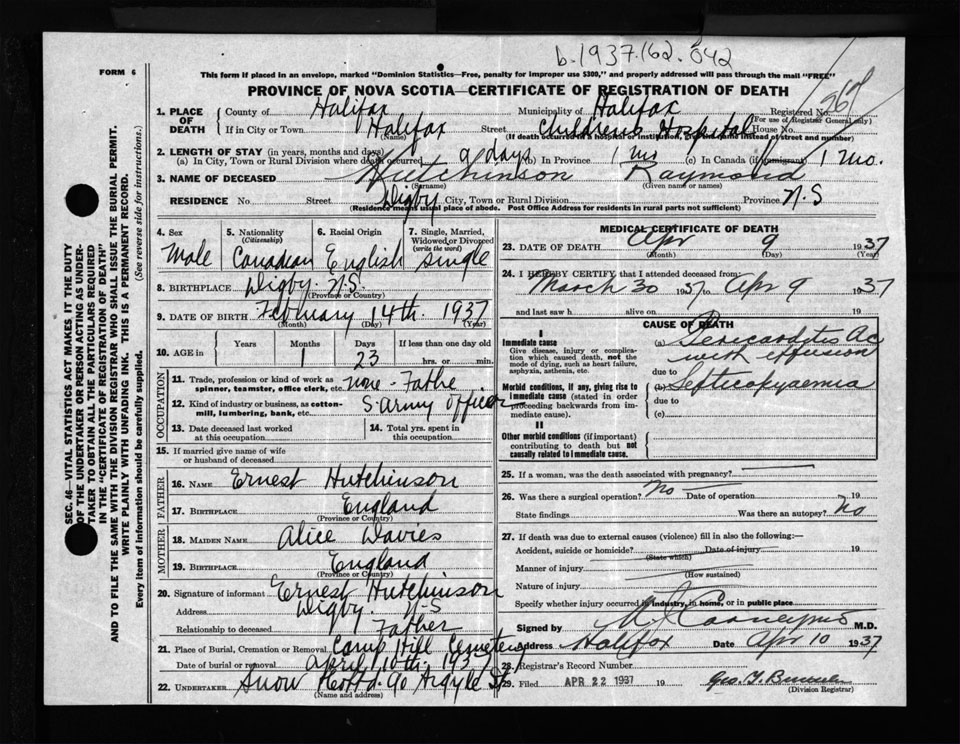 b.1937.162.042
FORM 6
This form if placed in an envelope, marked "Dominion Statistics—Free, penalty for improper use $300," and properly addressed will pass through the mail "FREE"
PROVINCE OF NOVA SCOTIA—CERTIFICATE OF REGISTRATION OF DEATH
SEC. 46—VITAL STATISTICS ACT MAKES IT THE DUTY
OF THE UNDERTAKER OR PERSON ACTING AS UNDER-
TAKER TO OBTAIN ALL THE PARTICULARS REQUIRED
IN THE "CERTIFICATE OF REGISTRATION OF DEATH"
AND TO FILE THE SAME WITH THE DIVISION REGISTRAR WHO SHALL ISSUE THE BURIAL PERMIT.
WRITE PLAINLY WITH UNFADING INK. THIS IS A PERMANENT RECORD.
Every item of information should be carefully supplied. (See reverse side for instructions.)
1. PLACE OF DEATH County of Halifax Municipality of Halifax Registered No.
(For use of Registrar General only)
If in City or Town Halifax Street Children's Hospital House No.
(Name) (If death occurred in a hospital or institution, give its name instead of street and number)
2. LENGTH OF STAY (in years, months and days)
(a) In City, Town or Rural Division where death occurred 9 days (b) In Province 1 mo (c) In Canada (if immigrant) 1 mo.
3. NAME OF DECEASED Hutchinson Raymond
(Surname) (Given name or names)
RESIDENCE No. Street Digby City, Town or Rural Division Province N.S
(Residence means usual place of abode. Post Office Address for residents in rural parts not sufficient)
4. Sex 5. Nationality (Citizenship) 6. Racial Origin 7. Single, Married, Widowed or Divorced (write the word)
Male Canadian English single
8. BIRTHPLACE Digby. N.S.
(Province or Country)
9. DATE OF BIRTH February 14th. 1937
(Month) (Day) (Year)
10. AGE in Years Months Days If less than one day old
1 23 hrs. or min.
OCCUPATION
11. Trade, profession or kind of work as spinner, teamster, office clerk, etc. none - Father
12. Kind of industry or business, as cotton-mill, lumbering, bank, etc. S. Army Officer
13. Date deceased last worked at this occupation 14. Total yrs. spent in this occupation
15. If married give name of wife or husband of deceased
FATHER
16. NAME Ernest Hutchinson
17. BIRTHPLACE England
(Province or Country)
MOTHER
18. MAIDEN NAME Alice Davies
19. BIRTHPLACE England
(Province or Country)
20. Signature of informant Ernest Hutchinson
Address Digby. N-S
Relationship to deceased Father
21. Place of Burial, Cremation or Removal Camp Hill Cemetery
Date of burial or removal April 10th. 1937
22. UNDERTAKER Snow 90 Argyle St
(Name and address)
MEDICAL CERTIFICATE OF DEATH
23. DATE OF DEATH Apr 9 1937
(Month) (Day) (Year)
24. I HEREBY CERTIFY that I attended deceased from:
March 30 1937 to Apr 9 1937
and last saw h alive on 19
CAUSE OF DEATH
I
Immediate cause
Give disease, injury or complication which caused death, not the mode of dying, such as heart failure, asphyxia, asthenia, etc.
(a) Pericarditis Ac
with effusion
due to
Morbid conditions, if any, giving rise to immediate cause (stated in order proceeding backwards from immediate cause).
(b) Septicopyaemia
due to
(c)
II
Other morbid conditions (if important) contributing to death but not causally related to immediate cause.
25. If a woman, was the death associated with pregnancy?
26. Was there a surgical operation? No Date of operation 19
State findings Was there an autopsy? No
27. If death was due to external causes (violence) fill in also the following:—
Accident, suicide or homicide? Date of injury 19
(State which)
Manner of injury
(How sustained)
Nature of injury
Specify whether injury occurred in industry, in home, or in public place
Signed by M.D.
Address Halifax Date Apr 10 1937
28. Registrar's Record Number
29. Filed APR 22 1937 19 Geo. T.
(Division Registrar)